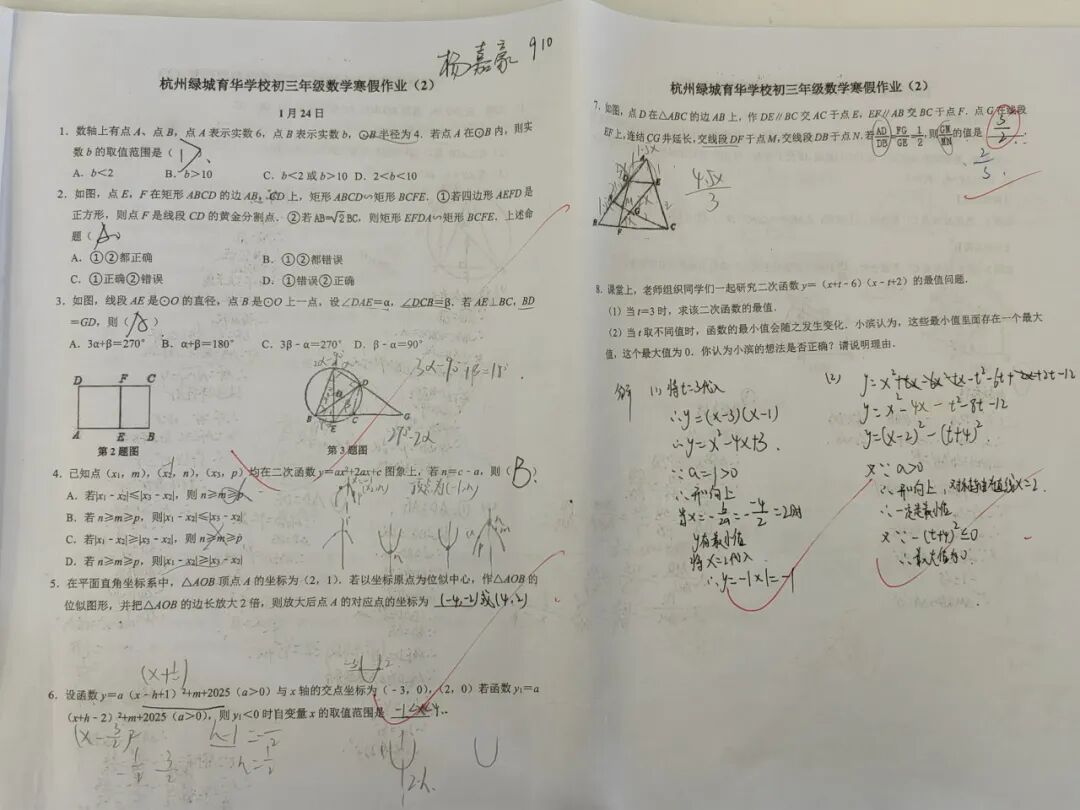 杨嘉豪 910
杭州绿城育华学校初三年级数学寒假作业（2）
1月24日
1．数轴上有点 A、点 B，点 A 表示实数 6，点 B 表示实数 b，⊙B 半径为 4．若点 A 在⊙B 内，则实
数 b 的取值范围是（ D ）
A．b<2 B．b>10 C．b<2 或 b>10 D．2<b<10
2．如图，点 E，F 在矩形 ABCD 的边 AB，CD 上，矩形 ABCD∽矩形 BCFE．①若四边形 AEFD 是
正方形，则点 F 是线段 CD 的黄金分割点．②若 AB=√2 BC，则矩形 EFDA∽矩形 BCFE．上述命
题（ A ）
A．①②都正确 B．①②都错误
C．①正确②错误 D．①错误②正确
3．如图，线段 AE 是⊙O 的直径，点 B 是⊙O 上一点，设∠DAE=α，∠DCB=β．若 AE⊥BC，BD
=GD，则（ A ）
A．3α+β=270° B．α+β=180° C．3β﹣α=270° D．β﹣α=90°
D F C
A E B
第 2 题图
第 3 题图
4．已知点（x₁，m），（x₂，n），（x₃，p）均在二次函数 y=ax²+2ax+c 图象上，若 n=c﹣a，则（ B ）
A．若|x₁﹣x₂|≤|x₃﹣x₂|，则 n≥m≥p
B．若 n≥m≥p，则|x₁﹣x₂|≤|x₃﹣x₂|
C．若|x₁﹣x₂|≥|x₃﹣x₂|，则 n≥m≥p
D．若 n≥m≥p，则|x₁﹣x₂|≥|x₃﹣x₂|
5．在平面直角坐标系中，△AOB 顶点 A 的坐标为（2，1）．若以坐标原点为位似中心，作△AOB 的
位似图形，并把△AOB 的边长放大 2 倍，则放大后点 A 的对应点的坐标为 (-4,-2)或(4,2)
6．设函数 y=a（x﹣h+1）²+m+2025（a>0）与 x 轴的交点坐标为（﹣3，0），（2，0）若函数 y₁=a
（x+h﹣2）²+m+2025（a>0），则 y₁<0 时自变量 x 的取值范围是 -1<x<4．
杭州绿城育华学校初三年级数学寒假作业（2）
7．如图，点 D 在△ABC 的边 AB 上，作 DE∥BC 交 AC 于点 E，EF∥AB 交 BC 于点 F．点 G 在线段
EF 上，连结 CG 并延长，交线段 DF 于点 M，交线段 DB 于点 N．若 AD/DB=FG/GE=1/2，则 GM/MN 的值是 5/2．
2/5
4.5x/3
8．课堂上，老师组织同学们一起研究二次函数 y=（x+t﹣6）（x﹣t+2）的最值问题．
（1）当 t=3 时，求该二次函数的最值．
（2）当 t 取不同值时，函数的最小值会随之发生变化．小滨认为，这些最小值里面存在一个最大
值，这个最大值为 0．你认为小滨的想法是否正确？请说明理由．
解 (1) 将t=3代入
∴y=(x-3)(x-1)
∴y=x²-4x+3
∵a=1>0
∴开口向上
当x=-b/2a=-(-4)/2=2时
y有最小值
将x=2代入
∴y=-1×1=-1
y=x²-4x-t²-8t-12
y=(x-2)²-(t+4)²
又∵a>0
∴开口向上，对称轴为直线x=2．
∴一定是最小值
又∵-(t+4)²≤0
∴最大值为0